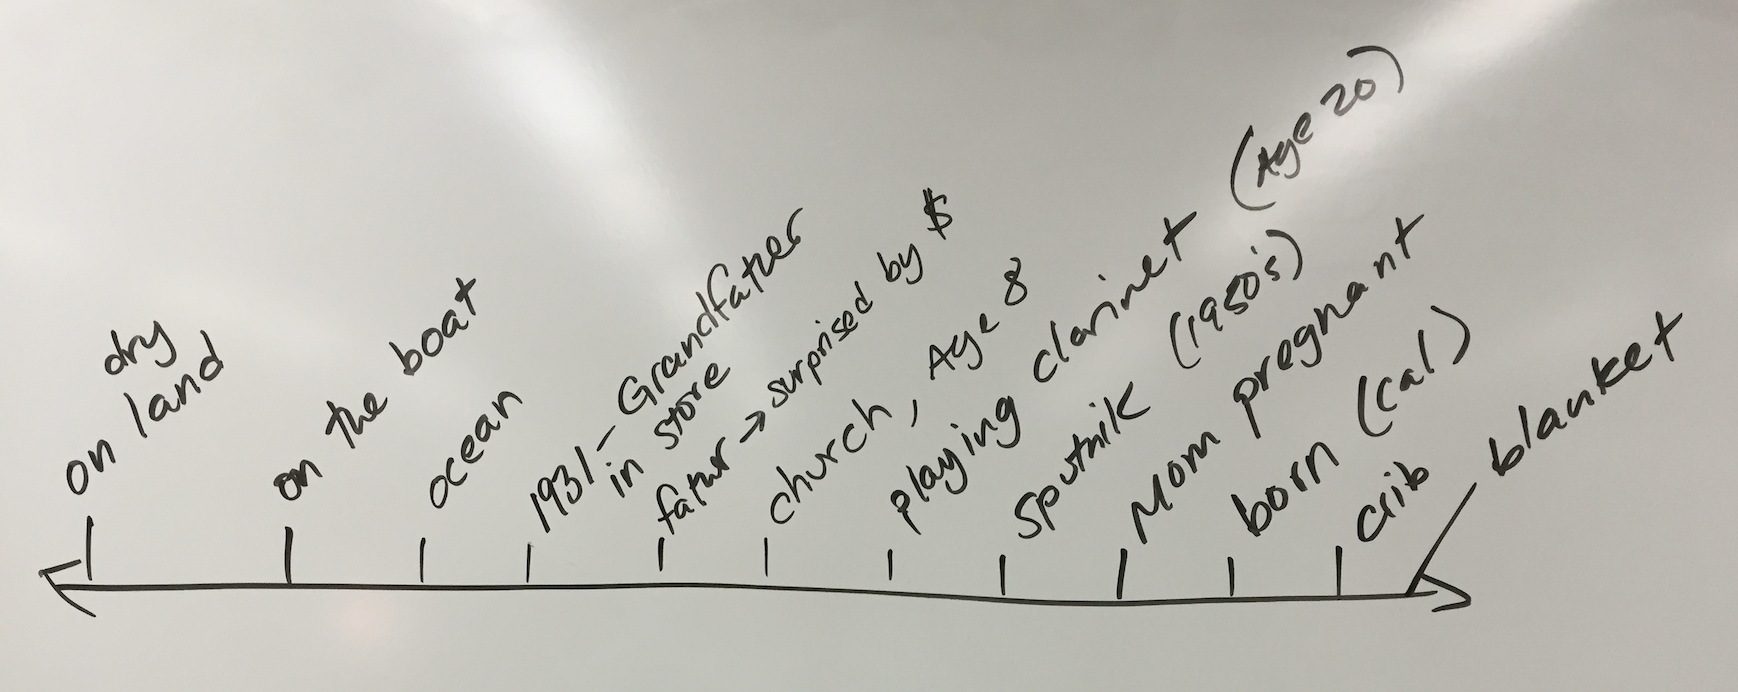 on dry
land
on the boat
ocean
1931 - Grandfather
in store
father → surprised by $
church, Age 8
playing clarinet (Age 20)
Sputnik (1950's)
Mom pregnant
born (Cal)
crib
blanket